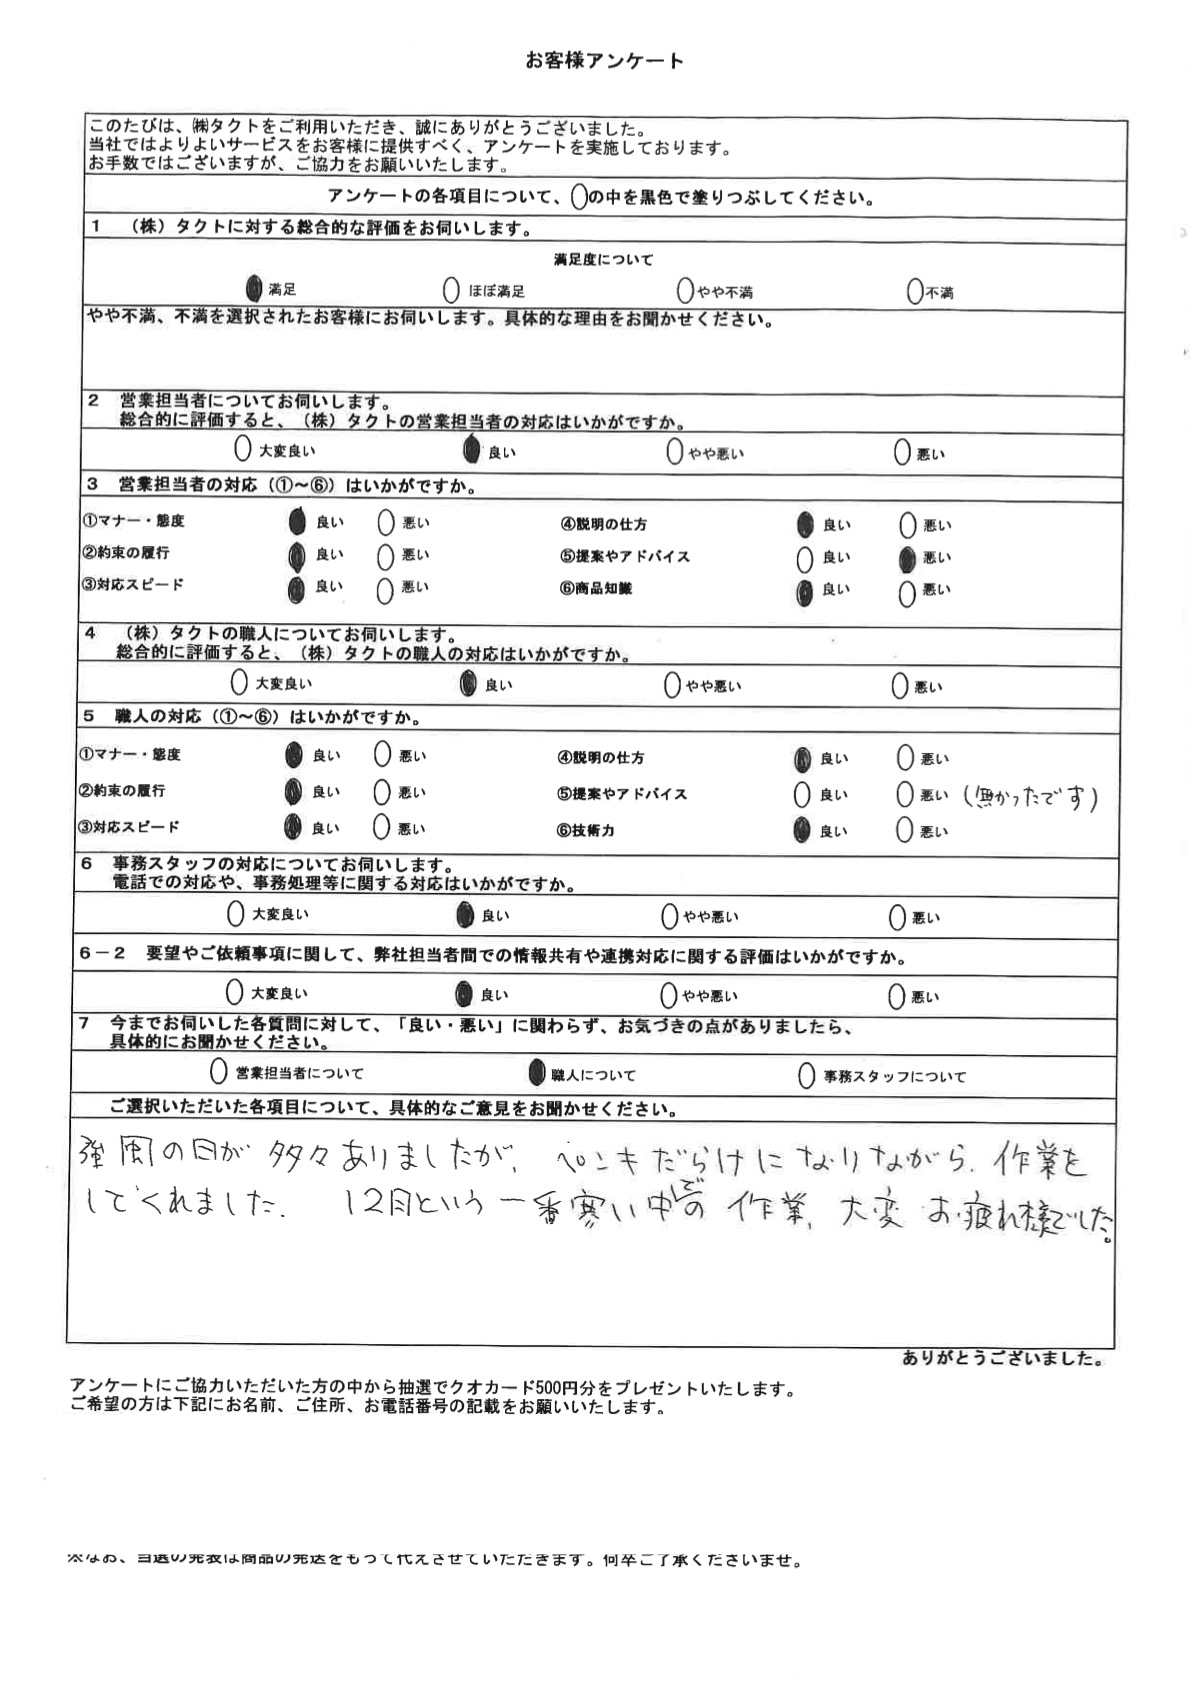 お客様アンケート
このたびは、㈱タクトをご利用いただき、誠にありがとうございました。
当社ではよりよいサービスをお客様に提供すべく、アンケートを実施しております。
お手数ではございますが、ご協力をお願いいたします。
アンケートの各項目について、○の中を黒色で塗りつぶしてください。
1 （株）タクトに対する総合的な評価をお伺いします。
満足度について
満足 ほぼ満足 やや不満 不満
やや不満、不満を選択されたお客様にお伺いします。具体的な理由をお聞かせください。
2 営業担当者についてお伺いします。
総合的に評価すると、（株）タクトの営業担当者の対応はいかがですか。
大変良い 良い やや悪い 悪い
3 営業担当者の対応（①～⑥）はいかがですか。
①マナー・態度 良い 悪い ④説明の仕方 良い 悪い
②約束の履行 良い 悪い ⑤提案やアドバイス 良い 悪い
③対応スピード 良い 悪い ⑥商品知識 良い 悪い
4 （株）タクトの職人についてお伺いします。
総合的に評価すると、（株）タクトの職人の対応はいかがですか。
大変良い 良い やや悪い 悪い
5 職人の対応（①～⑥）はいかがですか。
①マナー・態度 良い 悪い ④説明の仕方 良い 悪い
②約束の履行 良い 悪い ⑤提案やアドバイス 良い 悪い (無かったです)
③対応スピード 良い 悪い ⑥技術力 良い 悪い
6 事務スタッフの対応についてお伺いします。
電話での対応や、事務処理等に関する対応はいかがですか。
大変良い 良い やや悪い 悪い
6－2 要望やご依頼事項に関して、弊社担当者間での情報共有や連携対応に関する評価はいかがですか。
大変良い 良い やや悪い 悪い
7 今までお伺いした各質問に対して、「良い・悪い」に関わらず、お気づきの点がありましたら、
具体的にお聞かせください。
営業担当者について 職人について 事務スタッフについて
ご選択いただいた各項目について、具体的なご意見をお聞かせください。
強風の日が多々ありましたが、ペンキだらけになりながら、作業を
してくれました。 12月という一番寒い中での作業、大変お疲れ様でした。
ありがとうございました。
アンケートにご協力いただいた方の中から抽選でクオカード500円分をプレゼントいたします。
ご希望の方は下記にお名前、ご住所、お電話番号の記載をお願いいたします。
※なお、当選の発表は商品の発送をもって代えさせていただきます。何卒ご了承くださいませ。